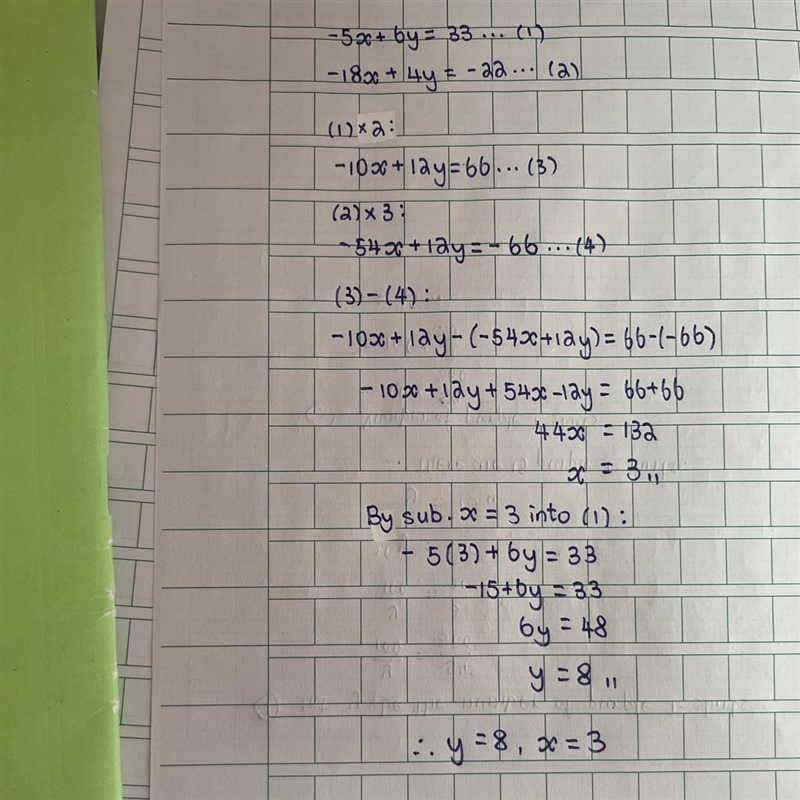 -5x + 6y = 33 ... (1)
-18x + 4y = -22 ... (2)
(1) × 2:
-10x + 12y = 66 ... (3)
(2) × 3:
-54x + 12y = -66 ... (4)
(3) - (4):
-10x + 12y - (-54x + 12y) = 66 - (-66)
-10x + 12y + 54x - 12y = 66 + 66
44x = 132
x = 3,,
By sub. x = 3 into (1):
-5(3) + 6y = 33
-15 + 6y = 33
6y = 48
y = 8,,
∴ y = 8, x = 3